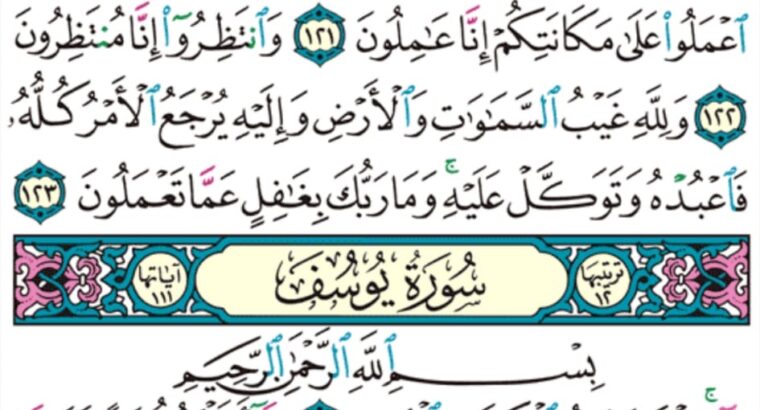 ٱعۡمَلُواْ عَلَىٰ مَكَانَتِكُمۡ إِنَّا عَٰمِلُونَ ١٢١ وَٱنتَظِرُوٓاْ إِنَّا مُنتَظِرُونَ
١٢٢ وَلِلَّهِ غَيۡبُ ٱلسَّمَٰوَٰتِ وَٱلۡأَرۡضِ وَإِلَيۡهِ يُرۡجَعُ ٱلۡأَمۡرُ كُلُّهُۥ
فَٱعۡبُدۡهُ وَتَوَكَّلۡ عَلَيۡهِۚ وَمَا رَبُّكَ بِغَٰفِلٍ عَمَّا تَعۡمَلُونَ ١٢٣
ترتيبها ١٢ سُورَةُ يُوسُفَ آياتها ١١١
بِسۡمِ ٱللَّهِ ٱلرَّحۡمَٰنِ ٱلرَّحِيمِ